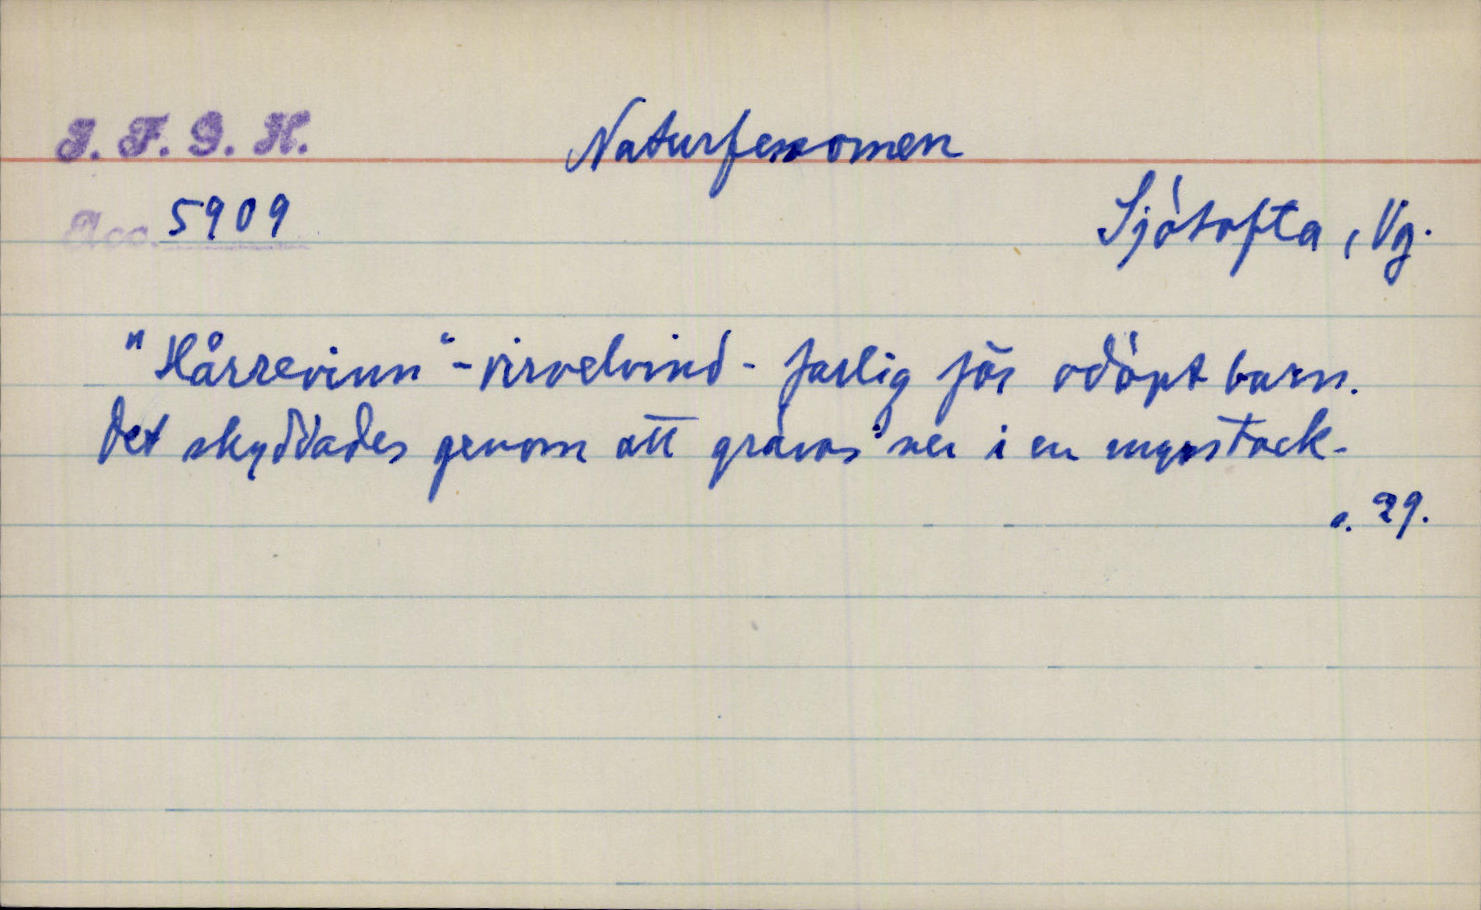 I. F. G. H.
Naturfenomen
Acc. 5909
Sjötofta, Vg.
"Hårrevinn" - virvelvind - farlig för odöpt barn.
Det skyddades genom att grävas ner i en myrstack.
s. 29.